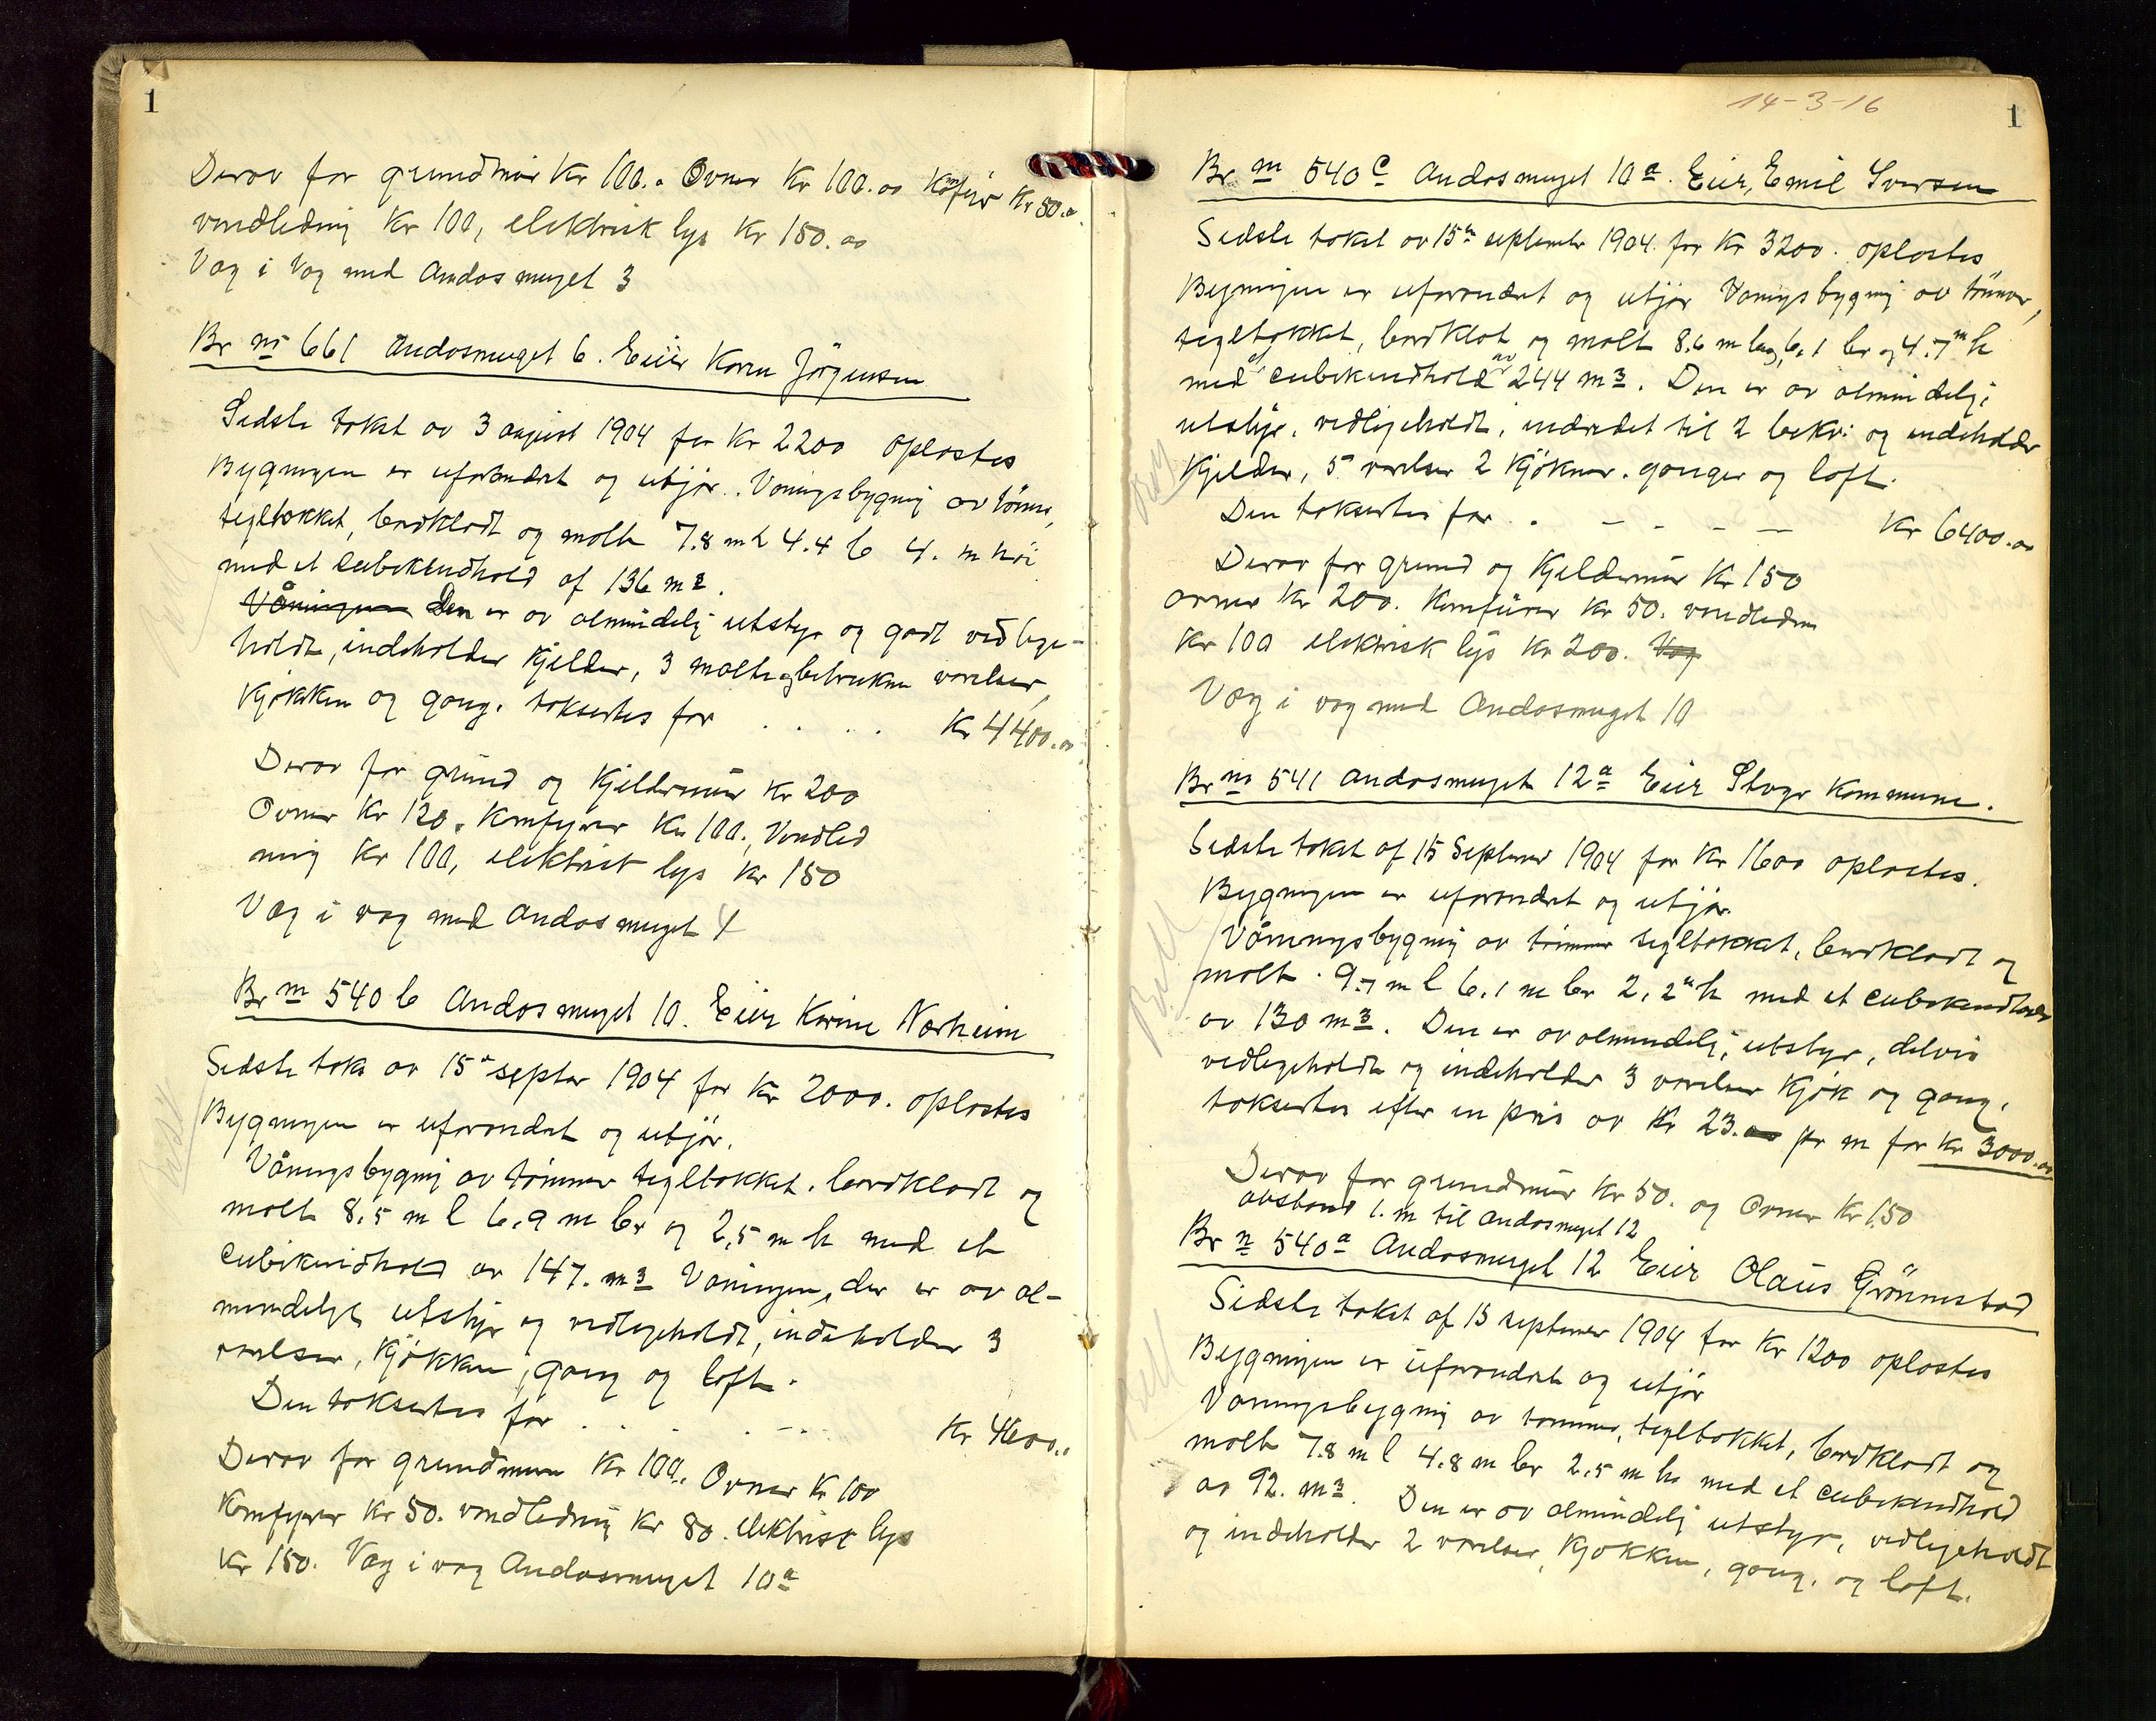 1
Derav for grundmur Kr 100.. Ovner Kr 100.00 Komfyr Kr 50..
vandledning Kr 100, elektrisk lys Kr 150.00
Væg i Væg med Andasmuget 3
Br no 661 Andasmuget 6. Eier Karen Jörgensen
Sidste takst av 3 august 1904 for Kr 2200 oplæstes
Bygningen er uforandret og utgjör. Vaningsbygning av tömmer,
tegltækket, bordklædt og malt 7.8 m l 4.4 b 4. m höi
med et Cubikindhold af 136 m3.
Våningen Den er av almindelig utstyr og godt vedlige-
holdt, indeholder Kjelder, 3 malte og betrukne værelser,
Kjökken og gang. taksertes for . . . . Kr 4400.00
Derav for grund og Kjeldermur Kr 200
Ovner Kr 120, Komfyrer Kr 100, Vandled
ning Kr 100, elektrisk lys Kr 150
Væg i væg med Andasmuget 4
Br no 540 b Andasmuget 10. Eier Karine Norheim
Sidste takst av 15 septbr 1904 for Kr 2000. oplæstes
Bygningen er uforandret og utgjör.
Våningsbygning av tömmer tegltækket, bordklædt og
malt 8,5 m l 6,9 m br og 2,5 m h med et
Cubikindhold av 147. m3 Vaningen, der er av al-
mindelige utstyr og vedligeholdt, indeholder 3
værelser, Kjökken, gang og loft.
Den taksertes for . . . . - - Kr 4600..
Derav for grundmur Kr 100. Ovner Kr 100
Komfyrer Kr 50. vandledning Kr 80. elektrisk lys
Kr 150. Væg i væg Andasmuget 10a
14-3-16
1
Br no 540 c Andasmuget 10a. Eier, Emil Iversen
Sidste takst av 15de september 1904 for Kr 3200. oplæstes
Bygningen er uforandret og utgjör Vaningsbygning av tömmer,
tegltækket, bordklæt og malt 8.6 m lng, 6.1 br og 4.7 m h
med et cubikindhold av 244 m3. Den er av almindelig
utstyr, vedligeholdt, indredet til 2 bekv: og indeholder
Kjelder, 5 værelser 2 Kjökner, ganger og loft.
Den taksertes for . - - - - Kr 6400.00
Derav for grund og Kjeldermur Kr 150
ovner Kr 200. Komfürer Kr 50. vandledn
Kr 100 elektrisk lys Kr 200. Væg
Væg i væg med Andasmuget 10
Br no 541 Andasmuget 12a Eier Stvgr Kommune.
Sidste takst af 15 September 1904 for Kr 1600 oplæstes.
Bygningen er uforandret og utgjör
Våningsbygning av tömmer tegltækket, bordklædt og
malt. 9.7 m l 6,1 m br 2,2 m h med et cubikindhold
av 130 m3. Den er av almindelig, utstyr, delvis
vedligeholdt og indeholder 3 værelser Kjök og gang,
taksertes efter en pris av Kr 23.00 pr m for Kr 3000.00
Derav for grundmur Kr 50. og Ovner Kr 150
avstand 1. m til Andasmuget 12
Br no 540a Andasmuget 12 Eier Olaus Grönnestad
Sidste takst af 15 september 1904 for Kr 1200 oplæstes
Bygningen er uforandret og utgjör
Vaningsbygning av tømmer, tegltækket, bordklædt og
malt 7.8 m l 4.8 m br 2.5 m h med et cubikindhold
av 92. m3. Den er av almindelig utstyr, vedligeholdt
og indeholder 2 værelser, Kjøkken, gang, og loft.